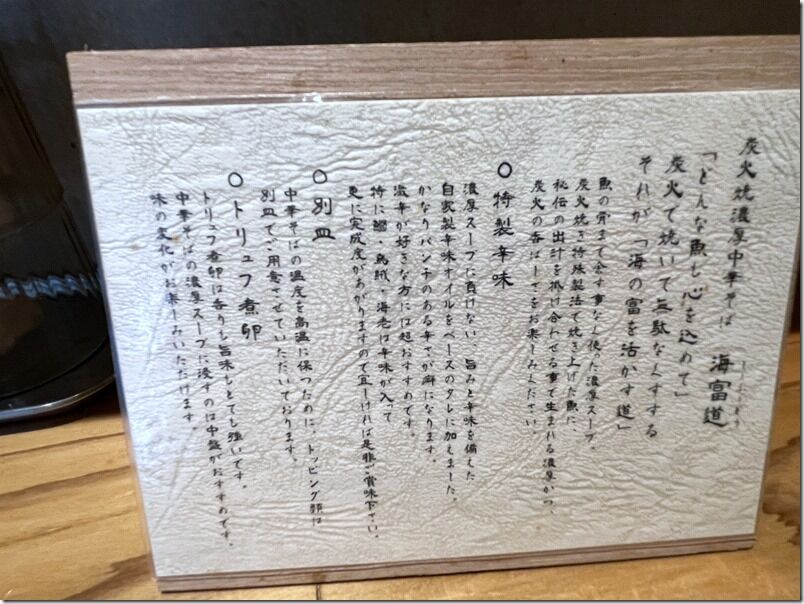 炭火焼濃厚中華そば 海富道
「どんな魚も心を込めて」
炭火で焼いて無駄なくする
それが「海の富を活かす道」
魚の骨まで余す事なく使った濃厚スープ。
炭火焼き特殊製法で焼き上げた魚に、
秘伝の出汁を掛け合わせる事で生まれる濃厚かつ、
炭火の香ばしさをお楽しみください
○特製辛味
濃厚スープに負けない 旨みと辛味を備えた
自家製辛味オイルをベースのタレに加えました。
かなりパンチのある辛さが癖になります。
激辛が好きな方には超おすすめです。
特に鯛・烏賊・海老は辛味が入って
更に完成度があがりますので宜しければ是非ご賞味下さい。
○別皿
中華そばの温度を高温に保つために、トッピング類は
別皿でご用意させていただいております。
○トリュフ煮卵
トリュフ煮卵は香りも旨味もとても強いです。
中華そばの濃厚スープに浸すのは中盤がおすすめです。
味の変化がお楽しみいただけます。